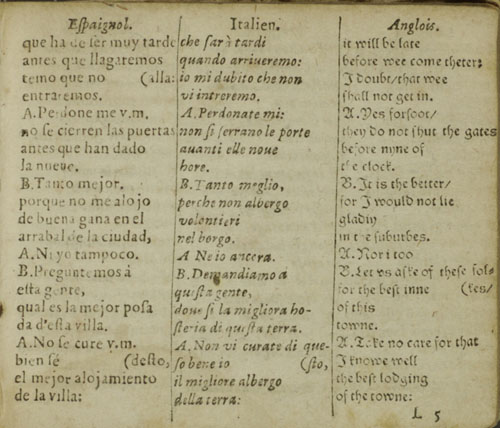 Eſpaignol.
que ha de ſer muy tarde
antes que llagaremos
temo que no (alla:
entraremos.
A. Perdone me v.m.
no ſe cierren las puertas
antes que han dado
la nueue.
B. Tanto mejor,
porque no me alojo
de buena gana en el
arrabal de la ciudad,
A. Ni yo tampoco.
B. Preguntemos â
eſta gente,
qual es la mejor poſa
da d'eſta villa.
A. No ſe cure v.m.
bien ſé (deſto,
el mejor alojamiento
de la villa:
Italien.
che ſarà tardi
quando arriueremo:
io mi dubito che non
vi intreremo.
A. Perdonate mi:
non ſi ſerrano le porte
auanti elle noue
hore.
B. Tanto meglio,
perche non albergo
volontieri
nel borgo.
A Ne io ancora.
B. Demandiamo a
queſta gente,
doue ſi la migliora ho-
ſteria di queſta terra.
A. Non vi curate di que-
ſo bene io (ſto,
il migliore albergo
della terra:
Anglois.
it will be late
before wee come theter:
I doubt/ that wee
ſhall not get in.
A. Yes forſoot/
they do not ſhut the gates
before nyne of
the clock.
B. It is the better/
for I would not lie
gladly
in the ſuburbes.
A. Nor i too
B. Let vs aſke of theſe fol-
for the beſt inne (kes/
of this
towne.
A. Take no care for that
I knowe well
the beſt lodging
of the towne:
L 5